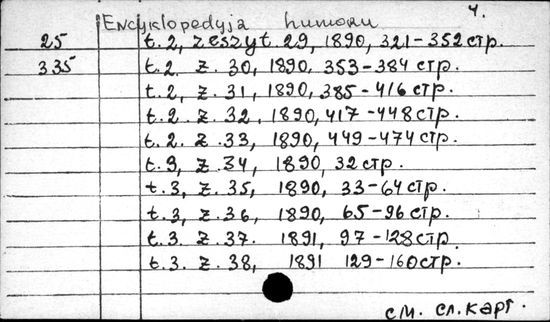 4.
Encyklopedyja humoru
25 t. 2, zeszyt. 29, 1890, 321-352 стр.
335 t. 2. z. 30, 1890, 353-384 стр.
t. 2, z. 31, 1890, 385-416 стр.
t. 2. z. 32, 1890, 417-448 стр.
t. 2. z. 33, 1890, 449-474 стр.
t. 3, z. 34, 1890, 32 стр.
t. 3, z. 35, 1890, 33-64 стр.
t. 3, z. 36, 1890, 65-96 стр.
t. 3. z. 37. 1891, 97-128 стр.
t. 3. z. 38, 1891 129-160 стр.
см. сл. карт.